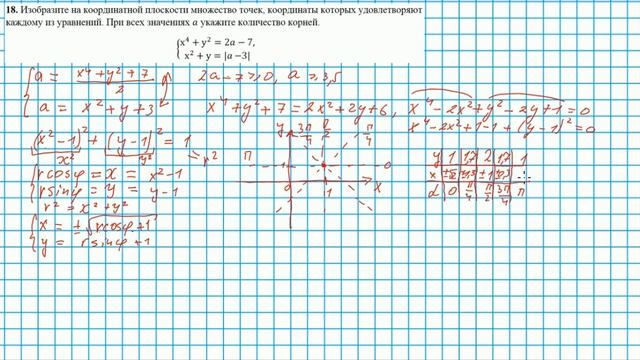 18. Изобразите на координатной плоскости множество точек, координаты которых удовлетворяют
каждому из уравнений. При всех значениях a укажите количество корней.
{x⁴ + y² = 2a − 7,
x² + y = |a −3|
{a = (x⁴+y²+7)/2
2a−7⩾0, a⩾3,5
a = x²+y+3
x⁴+y²+7=2x²+2y+6,
x⁴−2x²+y²−2y+1=0
x⁴−2x²+1−1+(y−1)²=0
(x²−1)²+(y−1)²=1
x² y² = r²
{rcosφ=x = x²−1
rsinφ=y = y−1
r²=x²+y²
{x = ±√(rcosφ+1)
y = rsinφ+1
y 3π/4 π/2 π/4
π 1
0 1 x
y 1 1,7 2 1,7 1
x
α 0 π/4 π/2 3π/4 π